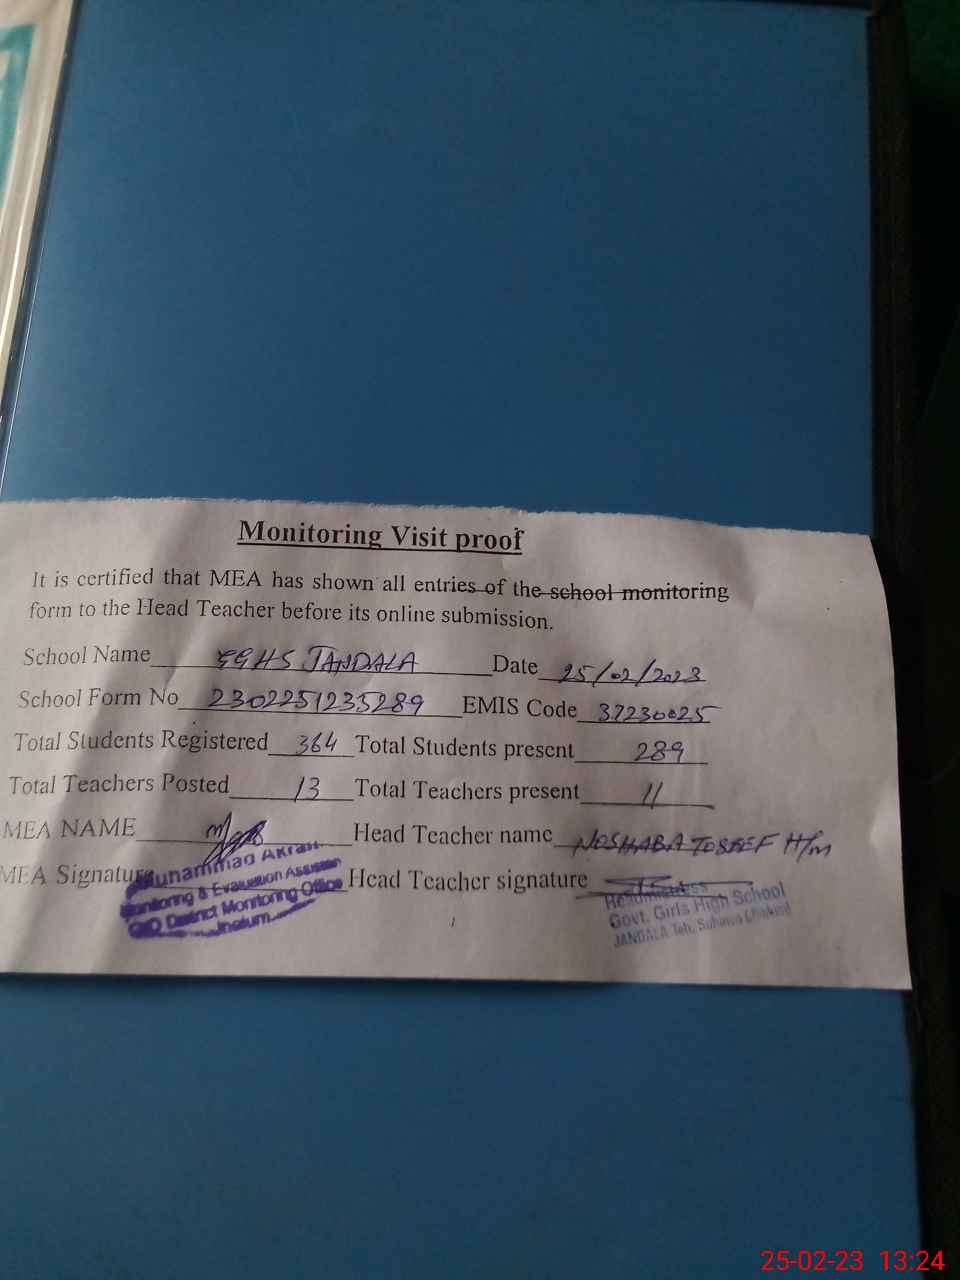 Monitoring Visit proof
It is certified that MEA has shown all entries of the school monitoring
form to the Head Teacher before its online submission.
School Name GGHS JANDALA Date 25/02/2023
School Form No 2302251235289 EMIS Code 37230025
Total Students Registered 364 Total Students present 289
Total Teachers Posted 13 Total Teachers present 11
MEA NAME Head Teacher name NOSHABA H/m
MEA Signature Head Teacher signature
Muhammad Akram
Monitoring & Evaluation Assistant
O/O District Monitoring Office
Jhelum
Headmistress
Govt. Girls High School
JANDALA Teh. Sohawa (Jhelum)
25-02-23 13:24